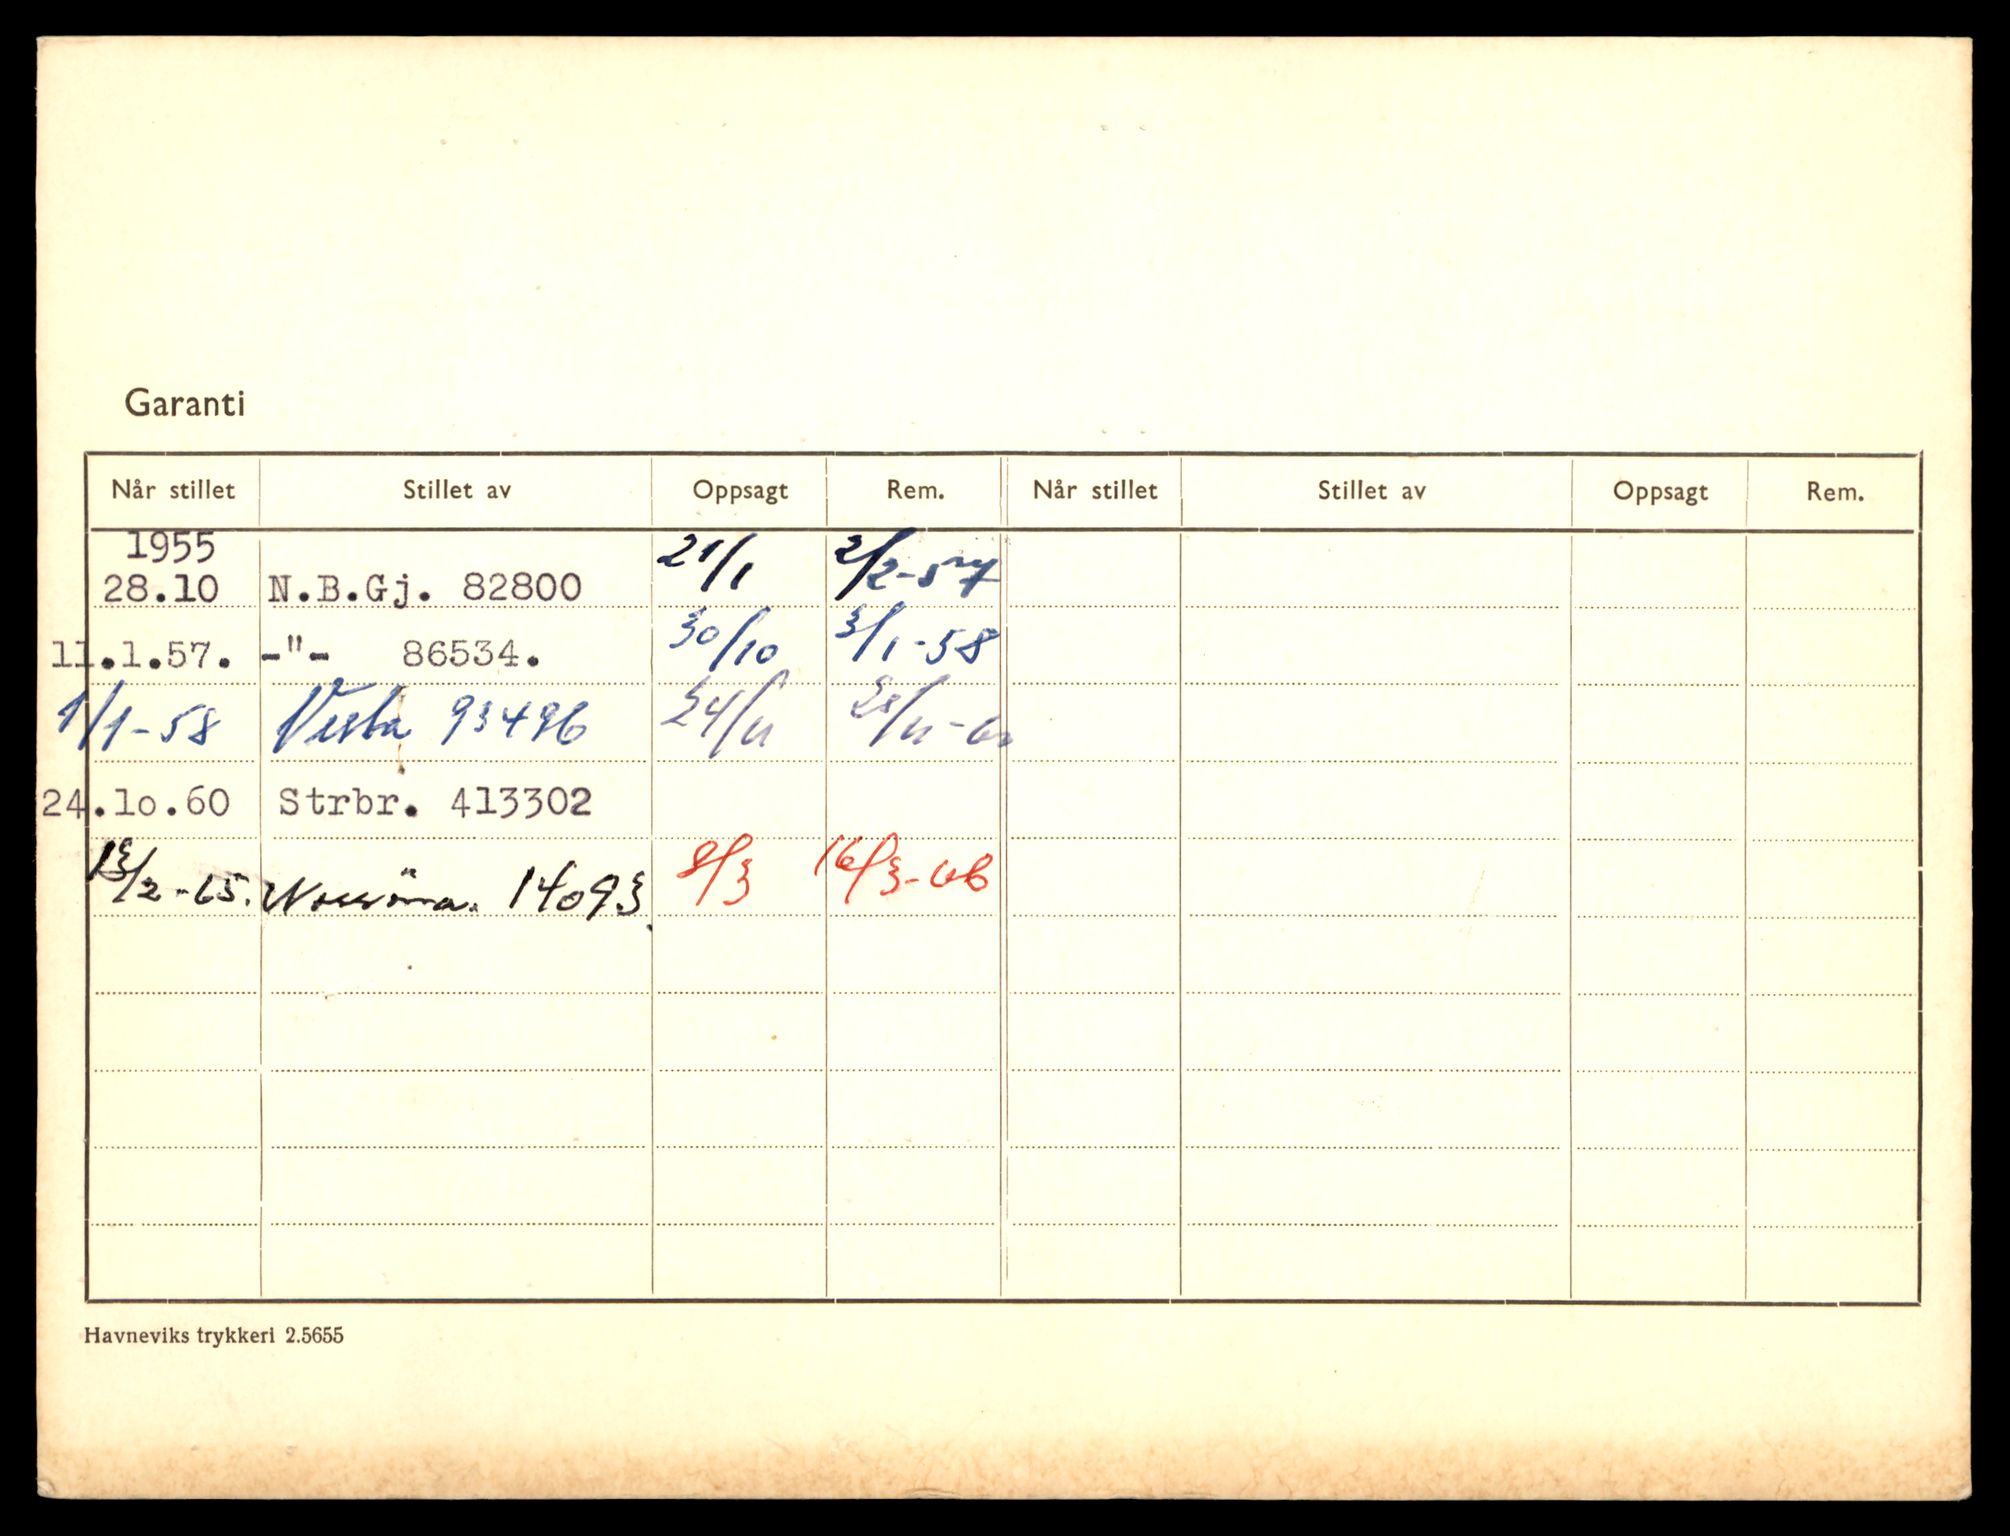 Garanti
Når stillet Stillet av Oppsagt Rem. Når stillet Stillet av Oppsagt Rem.
1955
28.10 N.B.Gj. 82800 21/1 2/2-57
11.1.57. -"- 86534. 30/10 3/1-58
1/1-58 Vesta 93496 24/11 28/11-60
24.10.60 Strbr. 413302
13/2-65. 14093. 8/3 16/3-66
Havneviks trykkeri 2.5655